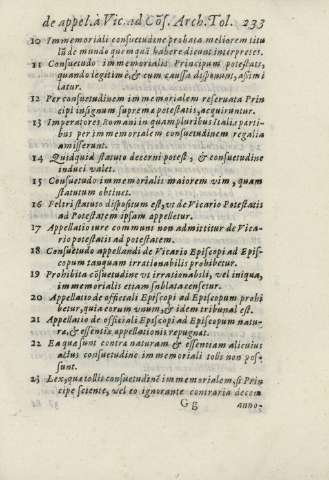 de appel. à Vic. ad Cõs. Arch. Tol. 233
10 Immemoriali consuetudine probata meliorem titu
lũ de mundo quem quã habere dicunt interpretes.
11 Consuetudo immemorialis Principum potestati,
quando legitimè, & cum caussa disponunt, assimi
latur.
12 Per consuetudinem immemorialem reseruata Prin
cipi in signum supremæ potestatis, acquiruntur.
13 Imperatores Romani in quampluribus Italiæ parti
bus per immemorialem consuetudinem regalia
amisserunt.
14 Quidquid statuto decerni potest, & consuetudine
induci valet.
15 Consuetudo immemorialis maiorem vim, quam
statutum obtinet.
16 Feltri statuto dispositum est, vt de Vicario Potestatis
ad Potestatem ipsam appelletur.
17 Appellatio iure communi non admittitur de Vica-
rio potestatis ad potestatem.
18 Consuetudo appellandi de Vicario Episcopi ad Epis-
copum tanquam irrationabilis prohibetur.
19 Prohibita cõsuetudine vt irrationabili, vel iniqua,
immemorialis etiam sublata censetur.
20 Appellatio de officiali Episcopi ad Episcopum prohi
betur, quia eorum vnum, & idem tribunal est.
21 Appellatio de officiali Episcopi ad Episcopum natu-
ræ, & essentiæ appellationis repugnat.
22 Ea quæ sunt contra naturam & essentiam alicuius
actus consuetudine immemoriali tolli non pos-
sunt.
23 Lex, quæ tollit consuetudinẽ immemorialem, si Prin
cipe sciente, vel eo ignorante contraria decem
Gg anno-